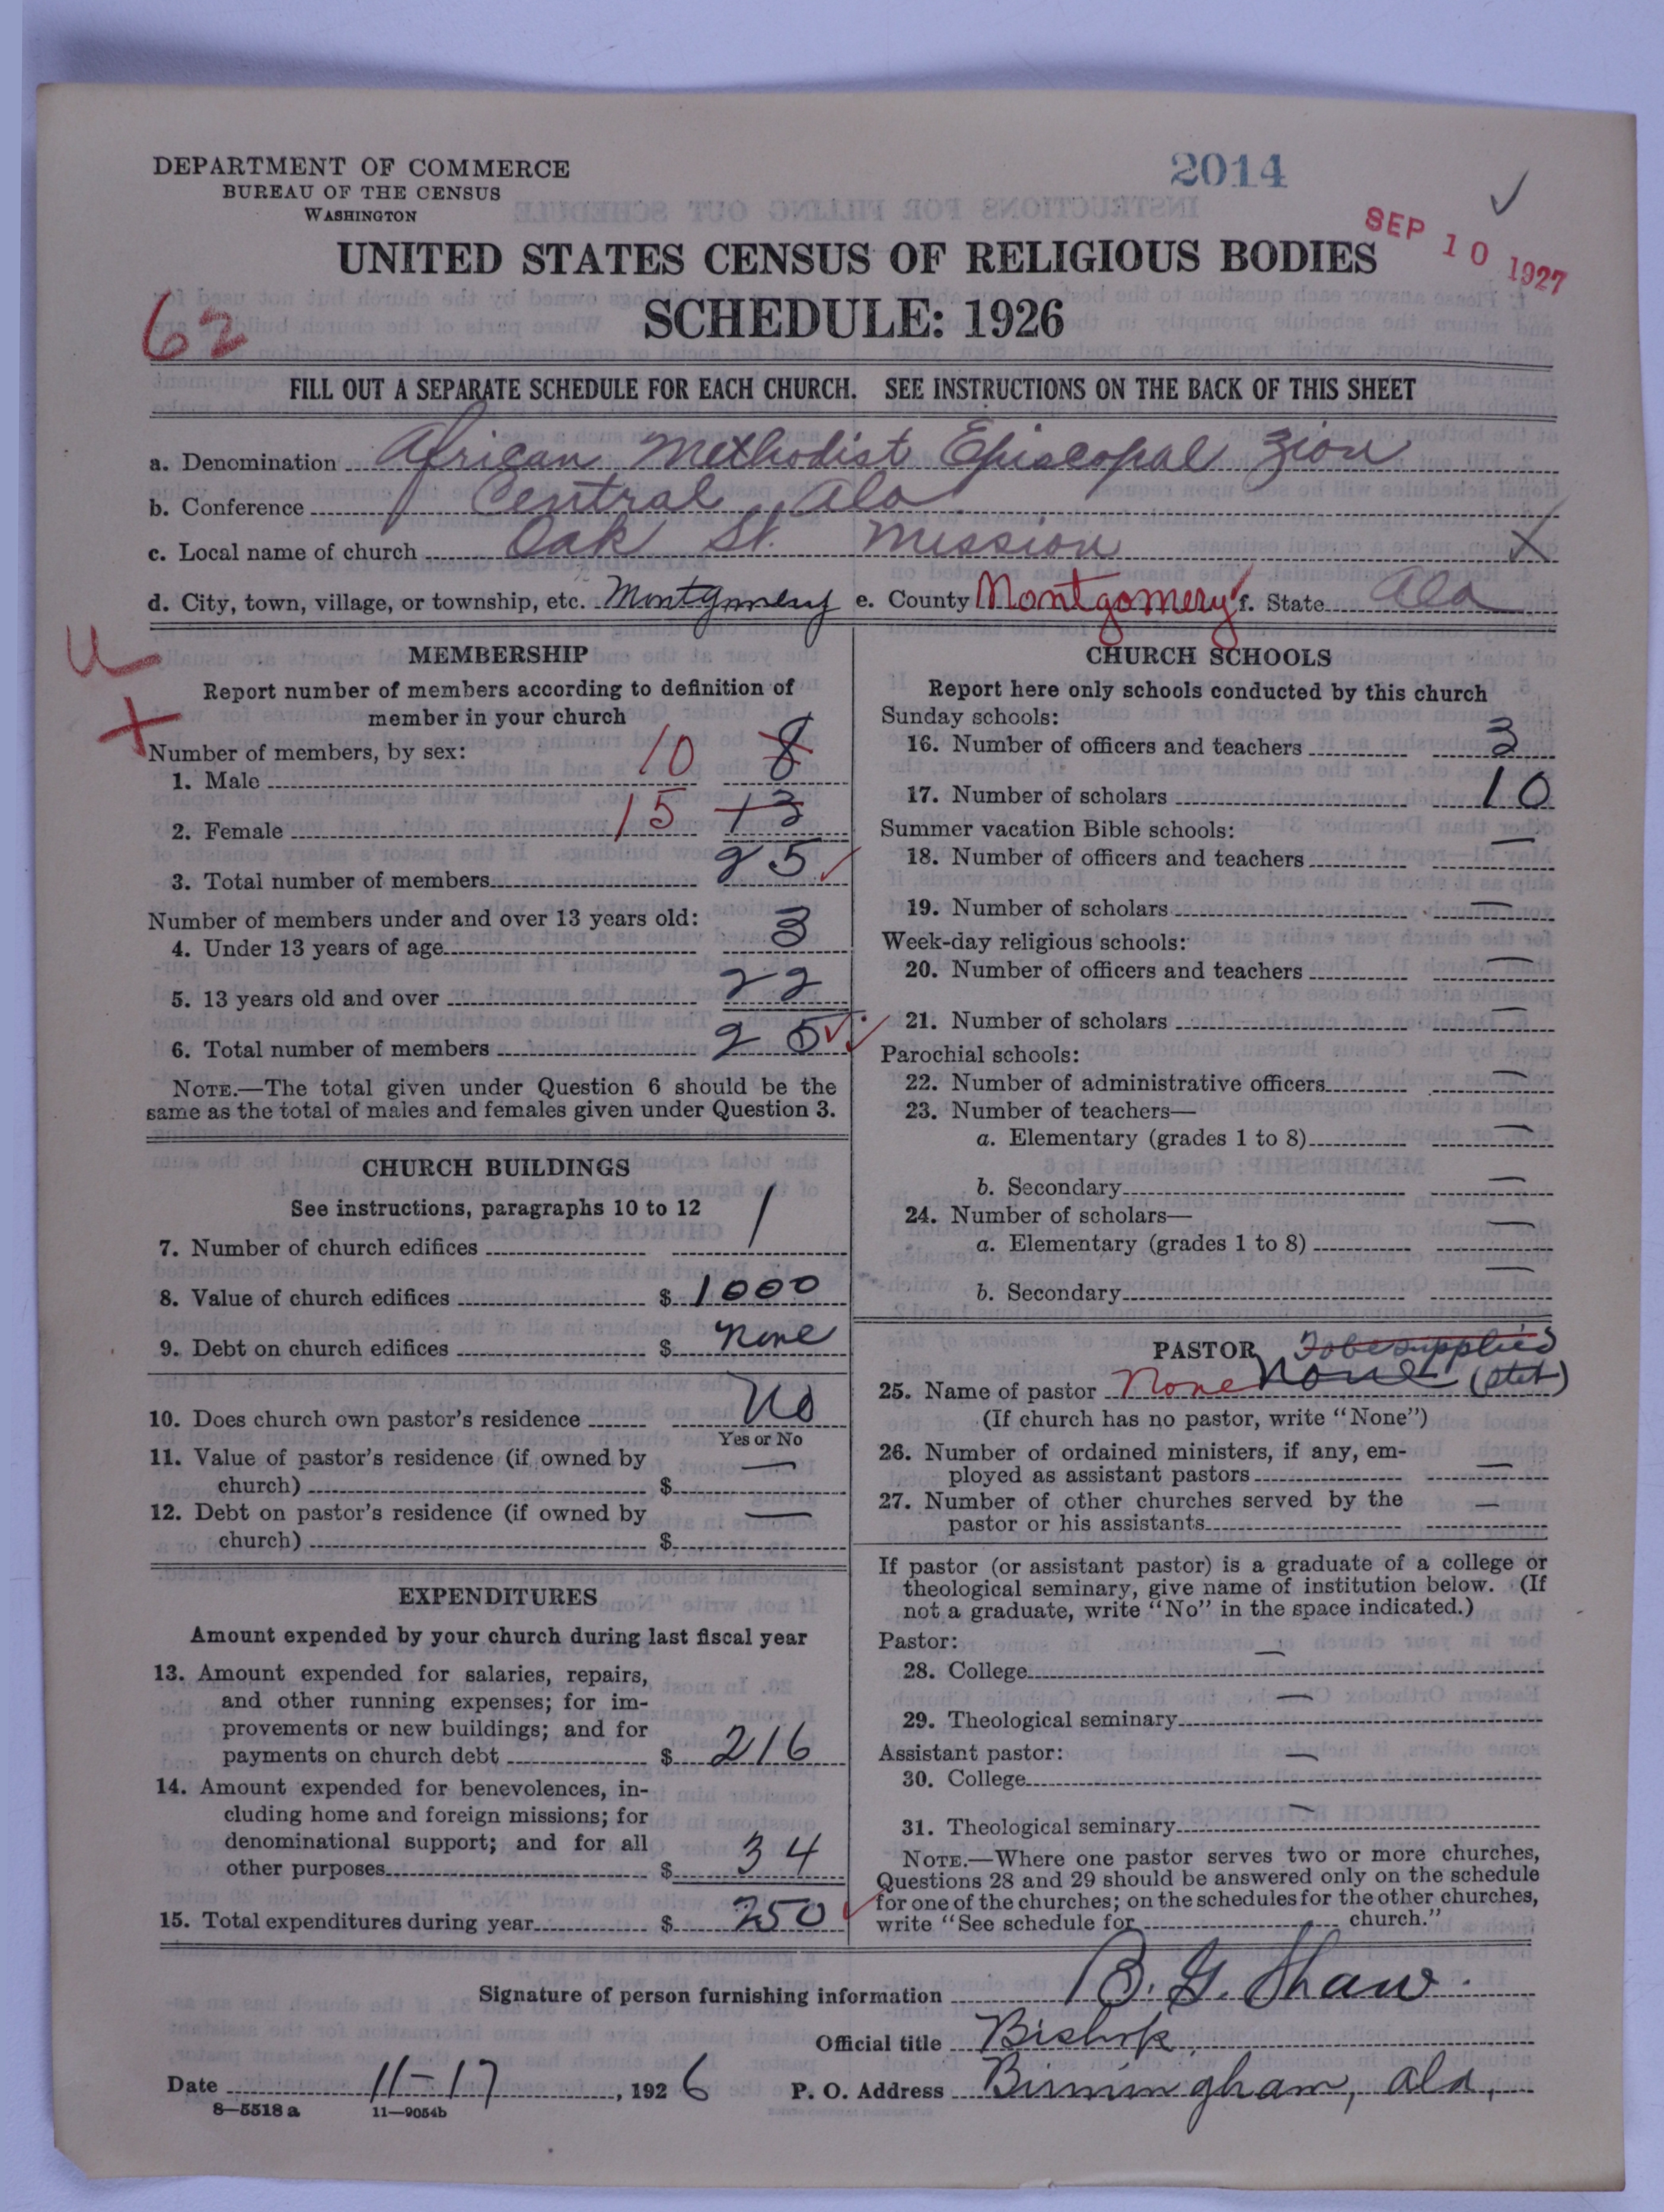 DEPARTMENT OF COMMERCE
BUREAU OF THE CENSUS
WASHINGTON
2014
SEP 10 1927
UNITED STATES CENSUS OF RELIGIOUS BODIES
SCHEDULE: 1926
62
FILL OUT A SEPARATE SCHEDULE FOR EACH CHURCH. SEE INSTRUCTIONS ON THE BACK OF THIS SHEET
a. Denomination African Methodist Episcopal Zion
b. Conference Central Ala
c. Local name of church Oak St. Mission X
d. City, town, village, or township, etc. Montgomery e. County Montgomery f. State Ala
MEMBERSHIP
Report number of members according to definition of
member in your church
Number of members, by sex:
1. Male 10 8
2. Female 15 13
3. Total number of members 25
Number of members under and over 13 years old:
4. Under 13 years of age 3
5. 13 years old and over 22
6. Total number of members 25
NOTE.—The total given under Question 6 should be the
same as the total of males and females given under Question 3.
CHURCH BUILDINGS
See instructions, paragraphs 10 to 12
7. Number of church edifices 1
8. Value of church edifices $ 1000
9. Debt on church edifices $ none
10. Does church own pastor's residence No
Yes or No
11. Value of pastor's residence (if owned by
church) $ —
12. Debt on pastor's residence (if owned by
church) $ —
EXPENDITURES
Amount expended by your church during last fiscal year
13. Amount expended for salaries, repairs,
and other running expenses; for im-
provements or new buildings; and for
payments on church debt $ 216
14. Amount expended for benevolences, in-
cluding home and foreign missions; for
denominational support; and for all
other purposes $ 34
15. Total expenditures during year $ 250
CHURCH SCHOOLS
Report here only schools conducted by this church
Sunday schools:
16. Number of officers and teachers 3
17. Number of scholars 10
Summer vacation Bible schools:
18. Number of officers and teachers —
19. Number of scholars —
Week-day religious schools:
20. Number of officers and teachers —
21. Number of scholars —
Parochial schools:
22. Number of administrative officers —
23. Number of teachers—
a. Elementary (grades 1 to 8) —
b. Secondary —
24. Number of scholars—
a. Elementary (grades 1 to 8) —
b. Secondary —
PASTOR To be supplied
25. Name of pastor None None (stet)
(If church has no pastor, write "None")
26. Number of ordained ministers, if any, em-
ployed as assistant pastors —
27. Number of other churches served by the
pastor or his assistants —
If pastor (or assistant pastor) is a graduate of a college or
theological seminary, give name of institution below. (If
not a graduate, write "No" in the space indicated.)
Pastor:
28. College —
29. Theological seminary —
Assistant pastor:
30. College —
31. Theological seminary —
NOTE.—Where one pastor serves two or more churches,
Questions 28 and 29 should be answered only on the schedule
for one of the churches; on the schedules for the other churches,
write "See schedule for church."
Signature of person furnishing information B. G. Shaw.
Official title Bishop
Date 11-17, 1926 P. O. Address Birmingham, Ala,
8—5518 a 11—9054b